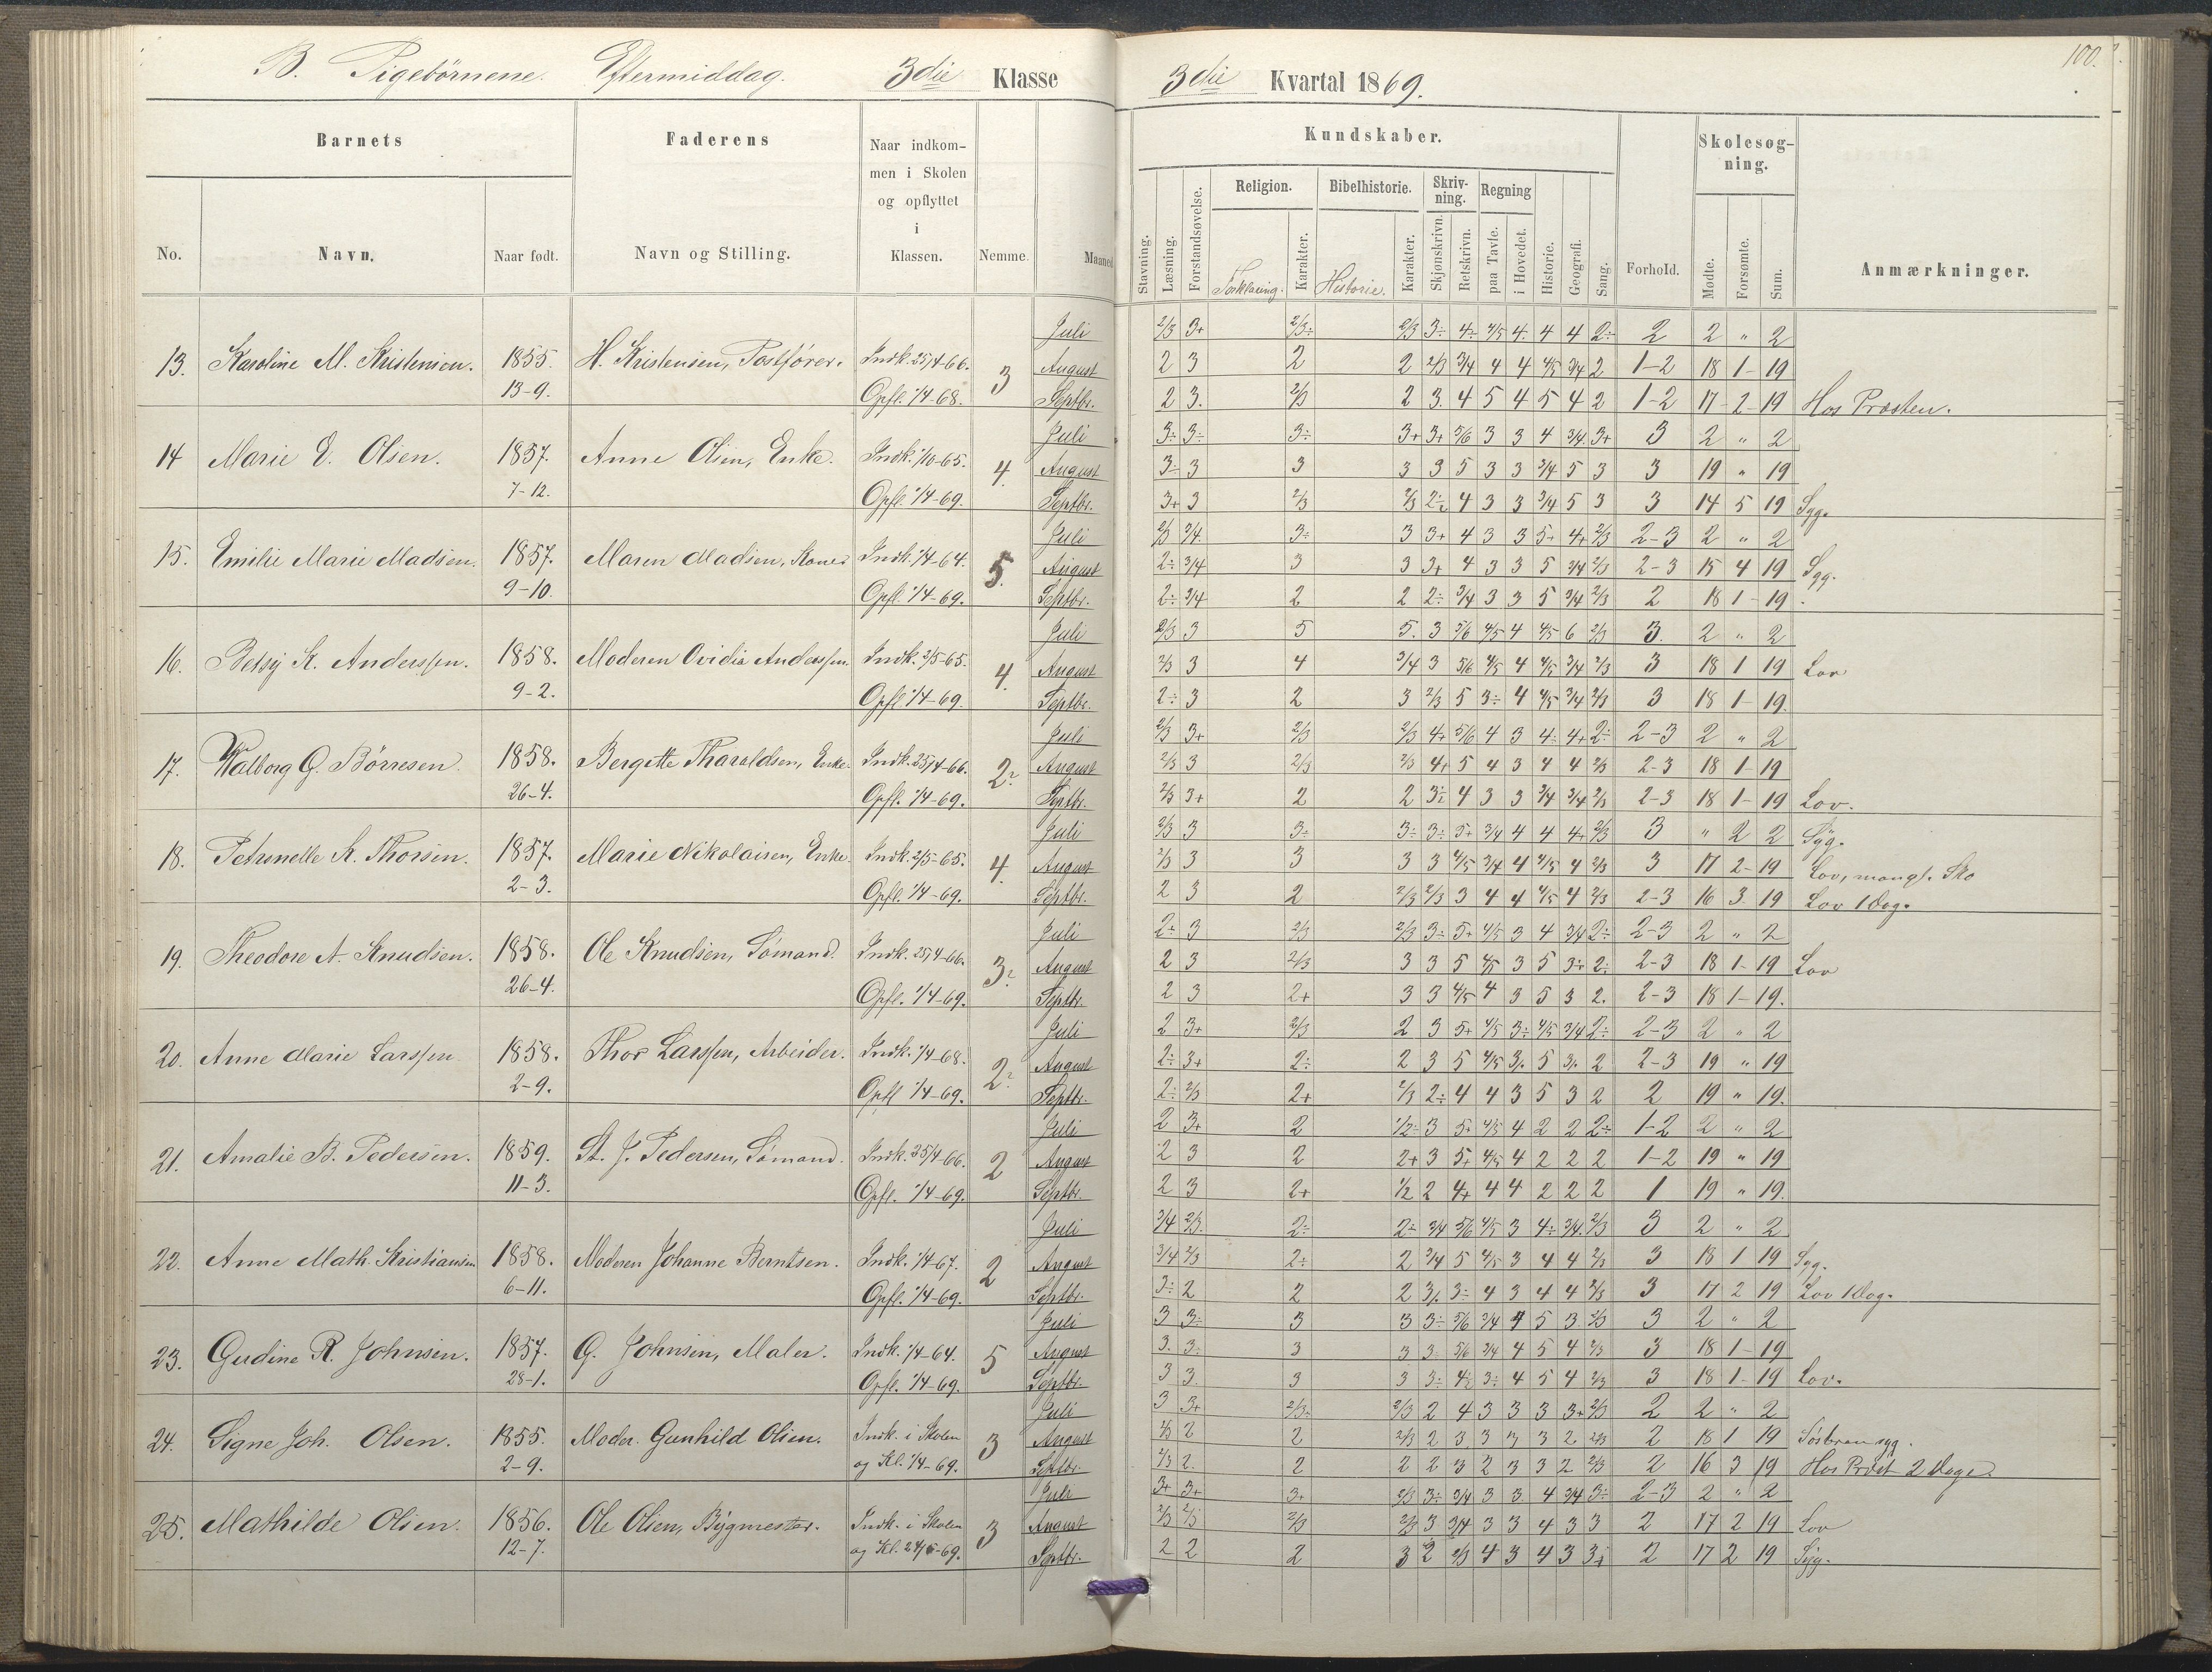 B. Pigebørnene. Eftermiddag. 3die Klasse
3die Kvartal 1869.
100.
Barnets
Faderens
Naar indkommen i Skolen og opflyttet i Klassen.
No.
Navn.
Naar født.
Navn og Stilling.
Nemme.
Maaned
Kundskaber.
Stavning.
Læsning.
Forstandsøvelse.
Religion.
Forklaring.
Karakter.
Bibelhistorie.
Historie.
Karakter.
Skrivning.
Skjønskrivn.
Retskrivn.
Regning
paa Tavle.
i Hovedet.
Historie.
Geografi.
Sang.
Forhold.
Skolesøgning.
Mødte.
Forsømte.
Sum.
Anmærkninger.
13. Karoline M. Kristensen. 1855. 13-9. H. Kristensen, Postfører. Indk. 25/4-66. Opfl. 1/4-68. 3
Juli 2/3 3+ 2/3÷ 2/3 3÷ 4÷ 4/5 4. 4 4 2÷ 2 2 " 2
August 2 3 2 2 2/3 3/4 4 4 4/5 3/4 2 1-2 18 1- 19
Septbr. 2 3. 2/3 2 3. 4 5 4 5 4 2 1-2 17 2- 19 Hos Præsten.
14 Marie E. Olsen. 1857. 7-12. Anne Olsen, Enke. Indk. 1/10-65. Opfl. 1/4-69. 4.
Juli 3÷ 3÷ 3÷ 3+ 3+ 5/6 3 3 4 3/4. 3+ 3 2 " 2
August 3÷ 3 3 3 3 5 3 3 3/4 5 3 3 19 " 19
Septbr. 3+ 3 2/3 2/3 2÷ 4 3 3 3/4 5 3 3 14 5 19 Syg.
15. Emilie Marie Madsen. 1857. 9-10. Maren Madsen, Kone Indk. 1/4-64. Opfl. 1/4-69. 5.
Juli 2/3 3/4 3÷ 3 3+ 4 3 3 5+ 4+ 2/3 2-3 2 " 2
August 2÷ 3/4 3 3 3+ 4 3 3 5 3/4 2/3 2-3 15 4 19 Syg.
Septbr. 2÷ 3/4 2 2 2÷ 3/4 3 3 5 3/4 2/3 2 18 1- 19.
16. Betsy K. Anderssen. 1858. 9-2. Moderen Ovidia Anderssen. Indk. 2/5-65. Opfl. 1/4-69. 4.
Juli 2/3 3 5 5. 3 5/6 4/5 4 4/5 6 2/3 3. 2 " 2
August 2/3 3 4 3/4 3 5/6 4/5 4 4/5 3/4 2/3 3 18 1 19 Lov
Septbr. 2÷ 3 2 3 2/3 5 3÷ 4 4/5 3/4 2/3 3 18 1- 19.
17. Walborg G. Børresen. 1858. 26-4. Bergitte Tharaldsen, Enke. Indk. 25/4-66. Opfl. 1/4-69. 2
Juli 2/3 3+ 2/3 2/3 4+ 5/6 4 3 4÷ 4+ 2÷ 2-3 2 " 2
August 2/3 3 2/3 2/3 4+ 5 4 3 4 4 2/3 2-3 18 1- 19
Septbr. 2/3 3+ 2 2 3÷ 4 3 3 3/4 3/4 2/3 2-3 18 1- 19 Lov.
18. Petrenelle K. Thorsen. 1857. 2-3. Marie Nikolaisen, Enke. Indk. 2/5-65. Opfl. 1/4-69. 4.
Juli 2/3 3 3÷ 3÷ 3÷ 5+ 3/4 4 4 4+ 2/3 3 " 2 2 Syg.
August 2/3 3 3 3 3 4/5 3/4 4 4/5 4 2/3 3 17 2- 19 Lov, mangl. Sko
Septbr. 2 3 2 2/3 2/3 3 4 4 4/5 4 2/3 2-3 16 3 19 Lov 1 Dag.
19. Theodore A. Knudsen. 1858. 26-4. Ole Knudsen, Sømand. Indk. 25/4-66. Opfl. 1/4-69. 3
Juli 2÷ 3 2/3 2/3 3÷ 5+ 4/5 3 4 3/4 2÷ 2-3 2 " 2
August 2 3 2/3 3 3 5 4/5 3 5 3÷ 2÷ 2-3 18 1- 19 Lov
Septbr. 2 3 2+ 3 3 4/5 4 3 5 3 2. 2-3 18 1- 19.
20. Anne Marie Larssen 1858. 2-9. Thor Larssen, Arbeider. Indk. 1/4-68. Opfl 1/4-69. 2
Juli 2 3+ 2/3 2 3 5+ 4/5 3÷ 4/5 3/4 2÷ 2-3 2 " 2
August 2÷ 3+ 2÷ 2 3 5 4/5 3÷ 5 3÷ 2 2-3 19 " 19
Septbr. 2÷ 2/3 2+ 2/3 2÷ 4 4 3 5 3 2 2 19 " 19.
21. Amalie B. Pedersen. 1859. 11-3. St. J. Pedersen, Sømand. Indk. 25/4-66. Opfl. 1/4-69. 2
Juli 2 3+ 2 1/2÷ 3 5+ 4/5 4 2 2 2÷ 1-2 2 " 2
August 2 3 2 2+ 3 5+ 4/5 4 2 2 2 1-2 19 " 19
Septbr. 2 3 2+ 1/2 2 4+ 4 4 2 2 2 1 19 " 19.
22. Anne Math. Kristiansen 1858. 6-11. Moderen Johanne Berntsen. Indk. 1/4-67. Opfl. 1/4-69. 2
Juli 3/4 2/3. 2÷ 2÷ 3/4 5/6 4/5 3 4÷ 3/4. 2/3 3 2 " 2
August 3/4 2/3 2÷ 2 3/4 5 4/5 3 4 4 2/3 3 18 1 19 Syg.
Septbr. 3÷ 2 2 2 3÷ 3÷ 4 3 4 4 2/3 3 17 2 19 Lov 1 Dag.
23. Gudine R. Johnsen. 1857. 28-1. G. Johnsen, Maler. Indk. 1/4-64. Opfl. 1/4-69. 5
Juli 3 3÷ 3 3 3÷ 5/6 3/4 4 5 3 2/3 3 2 " 2
August 3. 3÷ 3 3 3 5/6 3/4 4 5 4 2/3 3 18 1- 19
Septbr. 3 3. 3 3 3÷ 4÷ 3÷ 4 5 4 2/3 3 18 1- 19 Lov.
24. Signe Joh. Olsen. 1855. 2-9. Moder. Gunhild Olsen. Indk. i Skolen og Kl. 1/4-69. 3
Juli 3 3+ 2/3÷ 2/3 2 4 3 3 3 3+ 2/3 2 2 " 2
August 2/3 2 2 2/3 2 3 3 3 3 2 2/3 2 18 1 19
Septbr. 2/3 2. 2 2 2 3 2 3 3 2 2/3 2 16 3 19 Hos Præst 2 Dage.
25. Mathilde Olsen. 1856. 12-7. Ole Olsen, Bygmester. Indk. i Skolen og Kl. 24/5-69. 3
Juli 3+ 3+ 3+ 2/3 3÷ 3/4 3 3 4 3/4 3÷ 2-3 2 " 2
August 2/3 2/3 2/3 2/3 3 3/4 3 3 4 3 3 2 17 2 19 Lov
Septbr. 2 2 2 3 2 2/3 4 3 4 3 3+ 2 17 2 19 Syg.